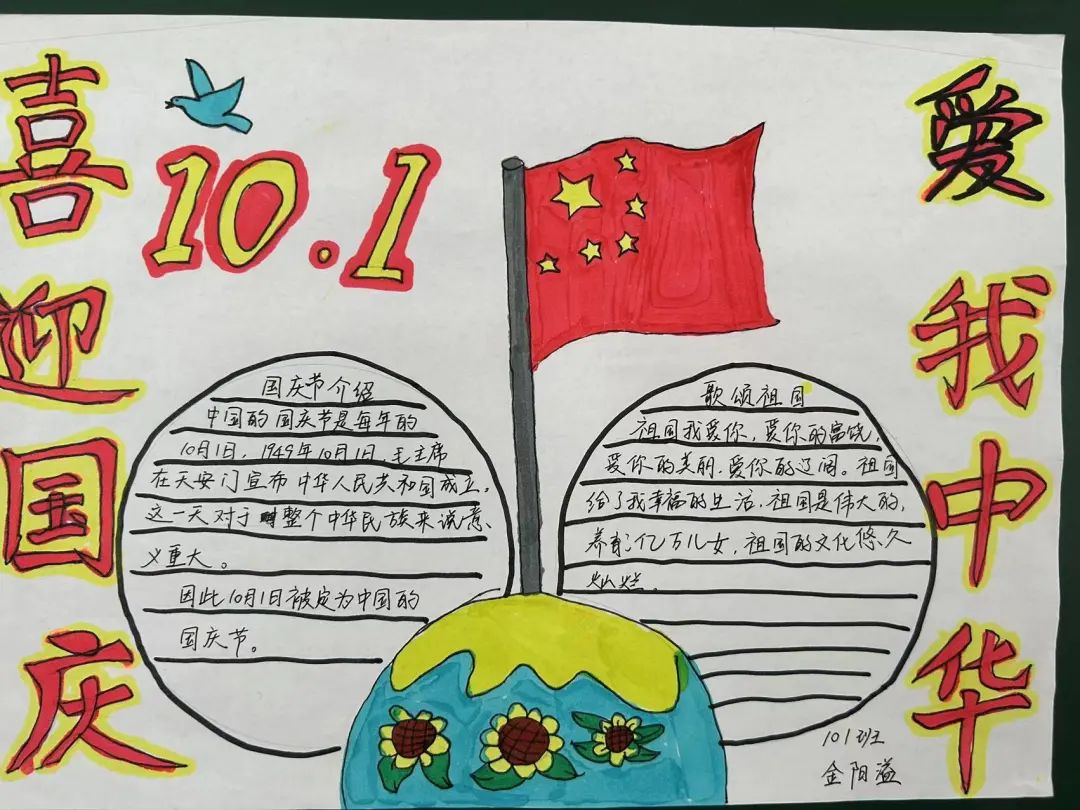 喜迎国庆
10.1
国庆节介绍
中国的国庆节是每年的
10月1日，1949年10月1日，毛主席
在天安门宣布中华人民共和国成立，
这一天对于整个中华民族来说意
义重大。
因此10月1日被定为中国的
国庆节。
歌颂祖国
祖国我爱你，爱你的富饶，
爱你的美丽，爱你的辽阔。祖国
给了我幸福的生活，祖国是伟大的，
养育亿万儿女，祖国的文化悠久
灿烂。
爱我中华
101班
金阳溢